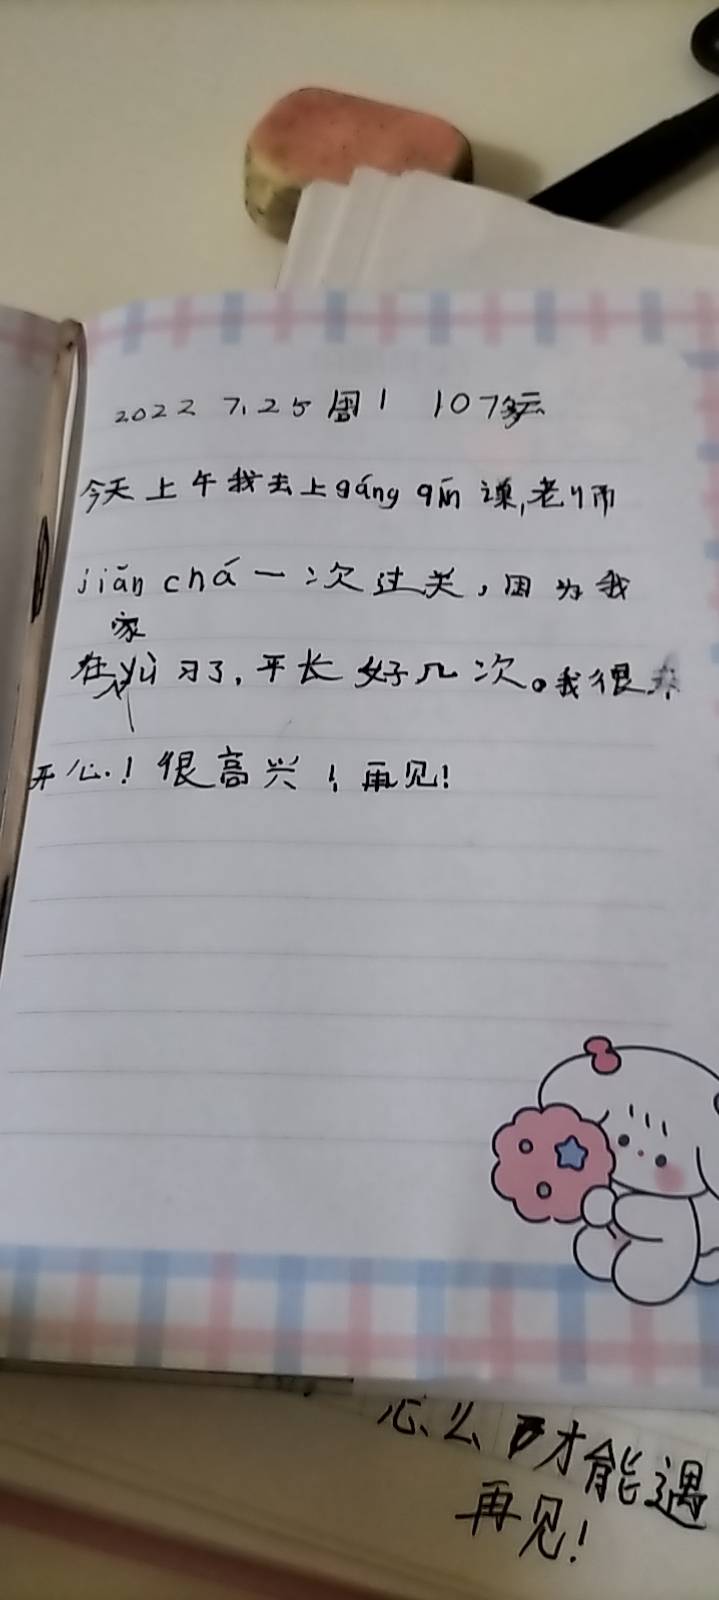 2022 7.25 周1 107多云
今天上午我去上gáng qín 课,老师
jiǎn chá一次过关，因为我
家
在 习了,平长好几次。我很
开心.! 很高兴！再见!
怎么 才能遇
再见!